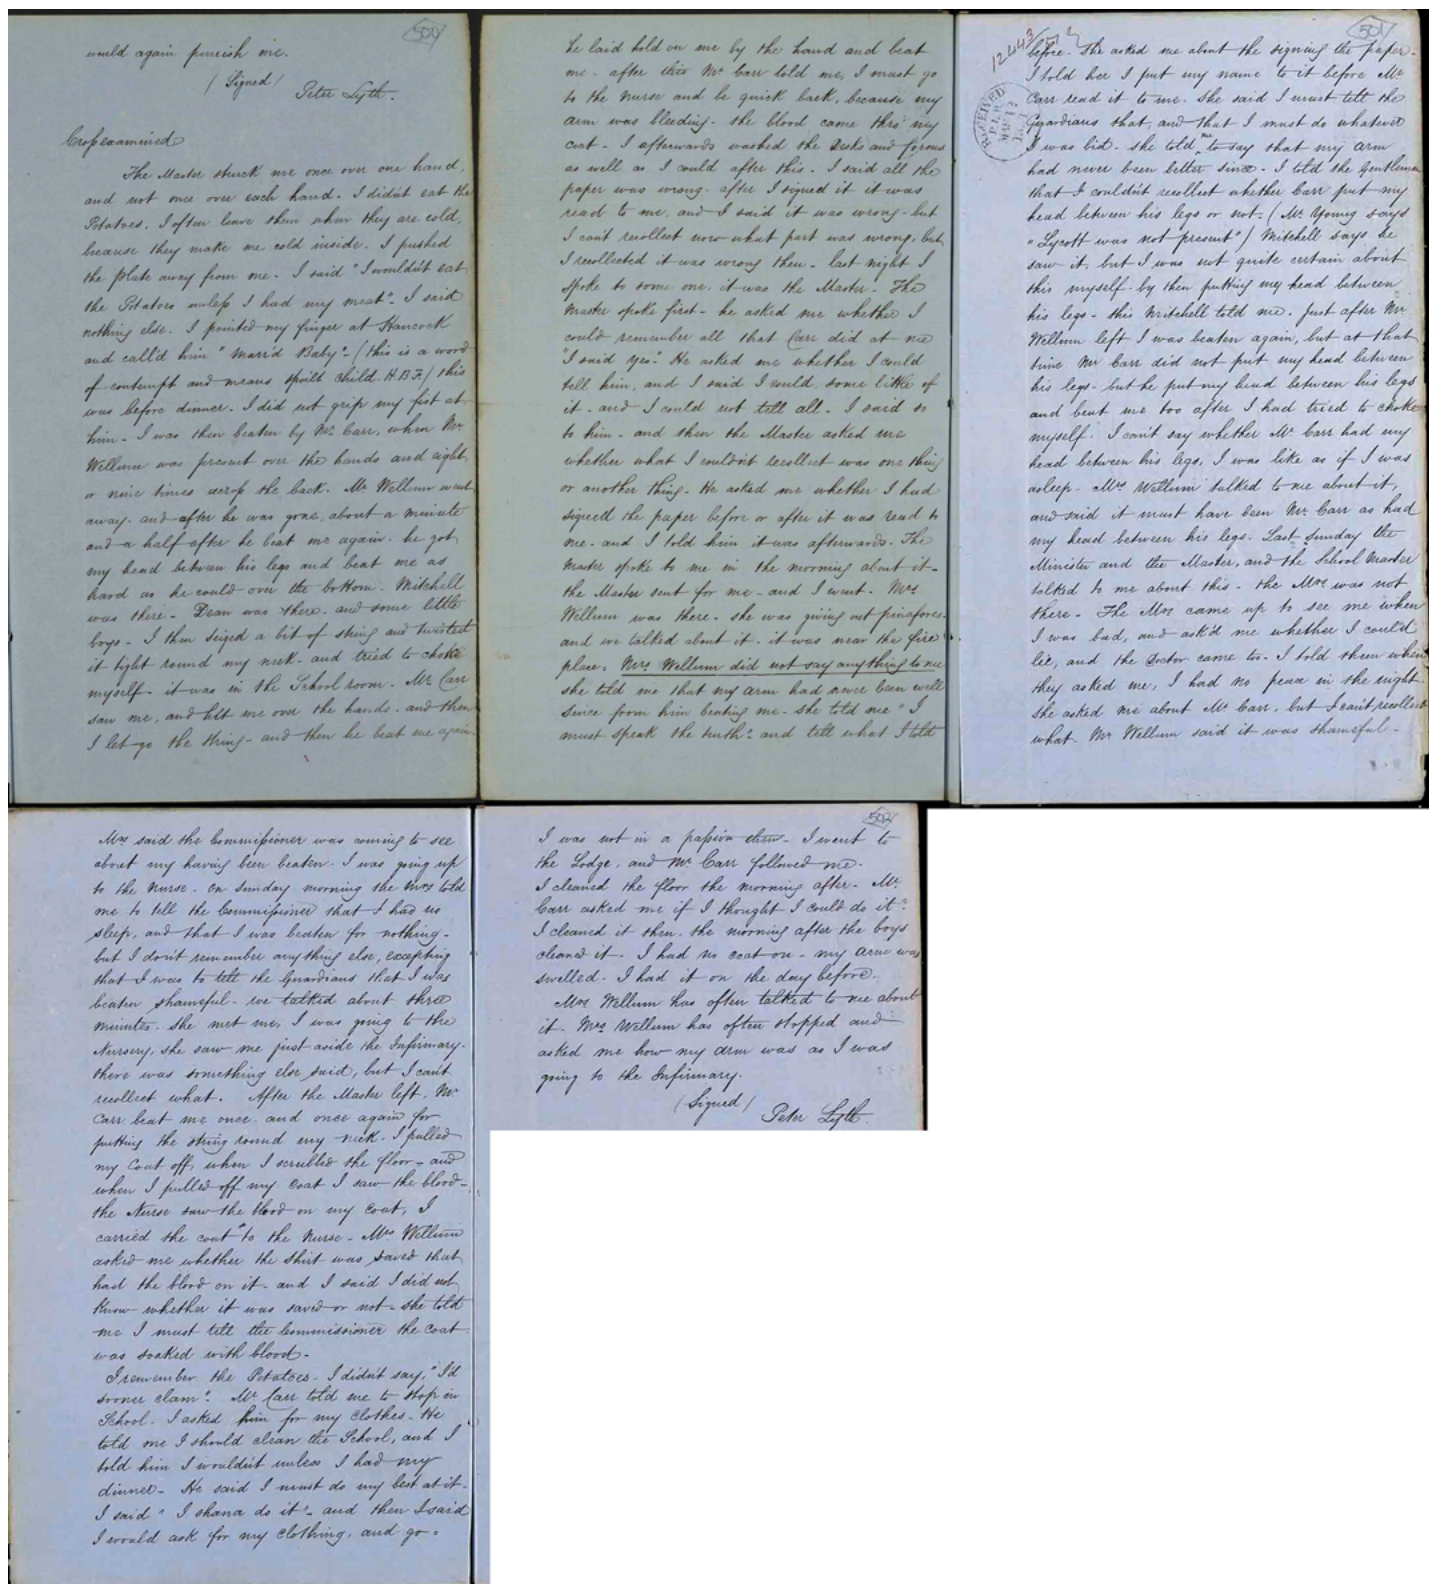 500
would again punish me.
(Signed)
Peter Lyth.
Cross examined
The Master struck me once over one hand,
and not once over each hand. I didn't eat the
Potatoes. I often leave them when they are cold,
because they make me cold inside. I pushed
the plate away from me. I said "I wouldn't eat
the Potatoes unless I had my meat". I said
nothing else. I pointed my finger at Hancock
and call'd him "Marr'd Baby". (this is a word
of contempt and means spoilt child. H.B.F.) this
was before dinner. I did not grip my fist at
him. I was then beaten by Mr. Carr, when Mr.
Wellum was present over the hands and eight
or nine times across the back. Mr Wellum went
away. and after he was gone, about a minute
and a half after he beat me again. he got
my head between his legs and beat me as
hard as he could over the bottom. Mitchell
was there. Dean was there. and some little
boys. I then seized a bit of string and twisted
it tight round my neck. and tried to choke
myself. it was in the School room. Mr. Carr
saw me, and hit me over the hands. and then
I let go the string. and then he beat me again.
he laid hold on me by the hand and beat
me. after this Mr Carr told me, I must go
to the nurse and be quick back, because my
arm was bleeding. the blood came thro' my
coat. I afterwards washed the Desks and forms
as well as I could after this. I said all the
paper was wrong. after I signed it it was
read to me, and I said it was wrong. but
I can't recollect now what part was wrong, but
I recollected it was wrong then. last night I
spoke to some one, it was the Master. The
Master spoke first. he asked me whether I
could remember all that Carr did at me
"I said yes". He asked me whether I could
tell him, and I said I could, some little of
it. and I could not tell all. I said so
to him. and then the Master asked me
whether what I couldn't recollect was one thing
or another thing. He asked me whether I had
signed the paper before or after it was read to
me. and I told him it was afterwards. The
Master spoke to me in the morning about it.
the Master sent for me. and I went. Mrs
Wellum was there. she was giving out pinafores.
and we talked about it. it was near the fire
place. Mrs Wellum did not say anything to me
she told me that my arm had never been well
since from him beating me. she told me "I
must speak the truth". and tell what I told
501
12443/52
RECEIVED
before. She asked me about the signing the paper.
I told her I put my name to it before Mr
Carr read it to me. She said I must tell the
Guardians that, and that I must do whatever
I was bid. she told me to say that my arm
had never been better since. I told the Gentlemen
that I couldn't recollect whether Carr put my
head between his legs or not. (Mr. Young says
"Lycott was not present") Mitchell says he
saw it, but I was not quite certain about
this myself. by then putting my head between
his legs. this Mitchell told me. Just after Mr
Wellum left I was beaten again, but at that
time Mr Carr did not put my head between
his legs. but he put my head between his legs
and beat me too after I had tried to choke
myself. I can't say whether Mr. Carr had my
head between his legs, I was like as if I was
asleep. Mrs Wellum talked to me about it,
and said it must have been Mr. Carr as had
my head between his legs. Last Sunday the
Minister and the Master, and the School Master
talked to me about this. the Mrs was not
there. The Mrs came up to see me when
I was bad, and ask'd me whether I could
lie, and the Doctor came too. I told them when
they asked me, I had no peace in the night.
She asked me about Mr Carr, but I can't recollect
what. Mr Wellum said it was shameful.
Mrs said the Commissioner was coming to see
about my having been beaten. I was going up
to the nurse. on Sunday morning the Mrs told
me to tell the Commissioner that I had no
sleep, and that I was beaten for nothing.
but I don't remember anything else, excepting
that I was to tell the Guardians that I was
beaten shameful. we talked about three
minutes. She met me, I was going to the
Nursery, she saw me just aside the Infirmary.
there was something else said, but I can't
recollect what. After the Master left, Mr.
Carr beat me once. and once again for
putting the string round my neck. I pulled
my coat off, when I scrubbed the floor. and
when I pulled off my coat I saw the blood.
the Nurse saw the blood on my coat, I
carried the coat to the Nurse. Mrs Wellum
asked me whether the shirt was saved that
had the blood on it. and I said I did not
know whether it was saved or not. she told
me I must tell the Commissioner the coat
was soaked with blood.
I remember the Potatoes. I didn't say, "I'd
sooner clam". Mr Carr told me to stop in
School. I asked him for my clothes. He
told me I should clean the School, and I
told him I wouldn't unless I had my
dinner. He said I must do my best at it.
I said "I shana do it". and then I said
I would ask for my clothing, and go.
502
I was not in a passion then. I went to
the Lodge, and Mr Carr followed me.
I cleaned the floor the morning after. Mr.
Carr asked me if I thought I could do it.
I cleaned it then. the morning after the boys
cleaned it. I had no coat on. my arm was
swelled. I had it on the day before.
Mrs Wellum has often talked to me about
it. Mrs Wellum has often stopped and
asked me how my arm was as I was
going to the Infirmary.
(Signed)
Peter Lyth.